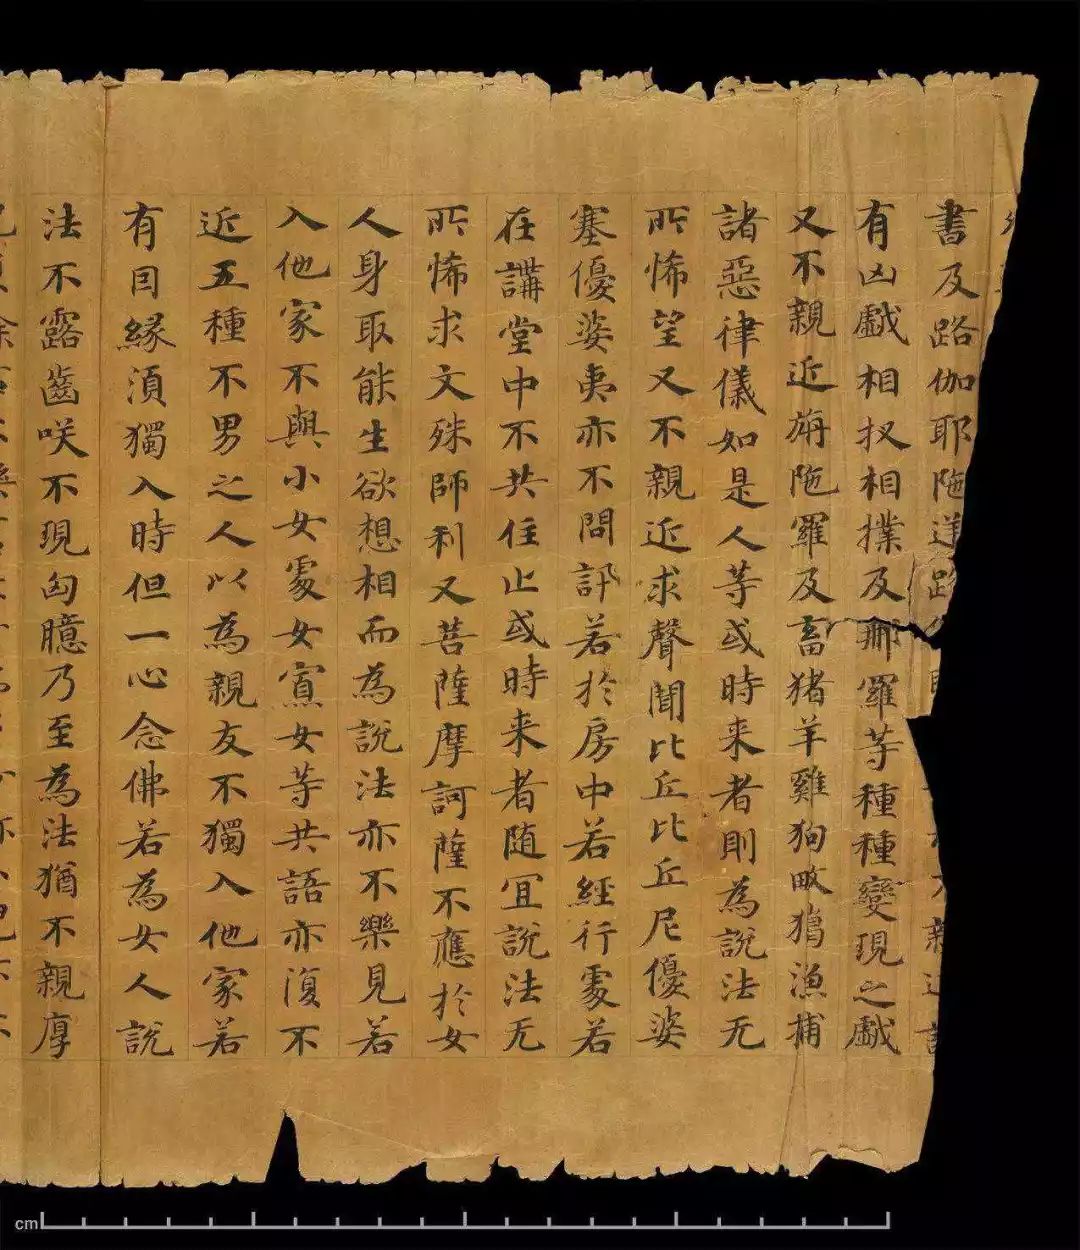 書及路伽耶陁逆路
不親近諸
有凶戱相扠相撲及那羅等種種變現之戱
又不親近旃陁羅及畜猪羊雞狗畋獦漁捕
諸惡律儀如是人等或時来者則為說法无
所悕望又不親近求聲聞比丘比丘尼優婆
塞優婆夷亦不問訊若於房中若經行處若
在講堂中不共住止或時来者随冝說法无
所悕求文殊師利又菩薩摩訶薩不應於女
人身取能生欲想相而為說法亦不樂見若
入他家不與小女處女寡女等共語亦復不
近五種不男之人以為親友不獨入他家若
有因緣湏獨入時但一心念佛若為女人說
法不露齒咲不現匈臆乃至為法猶不親厚